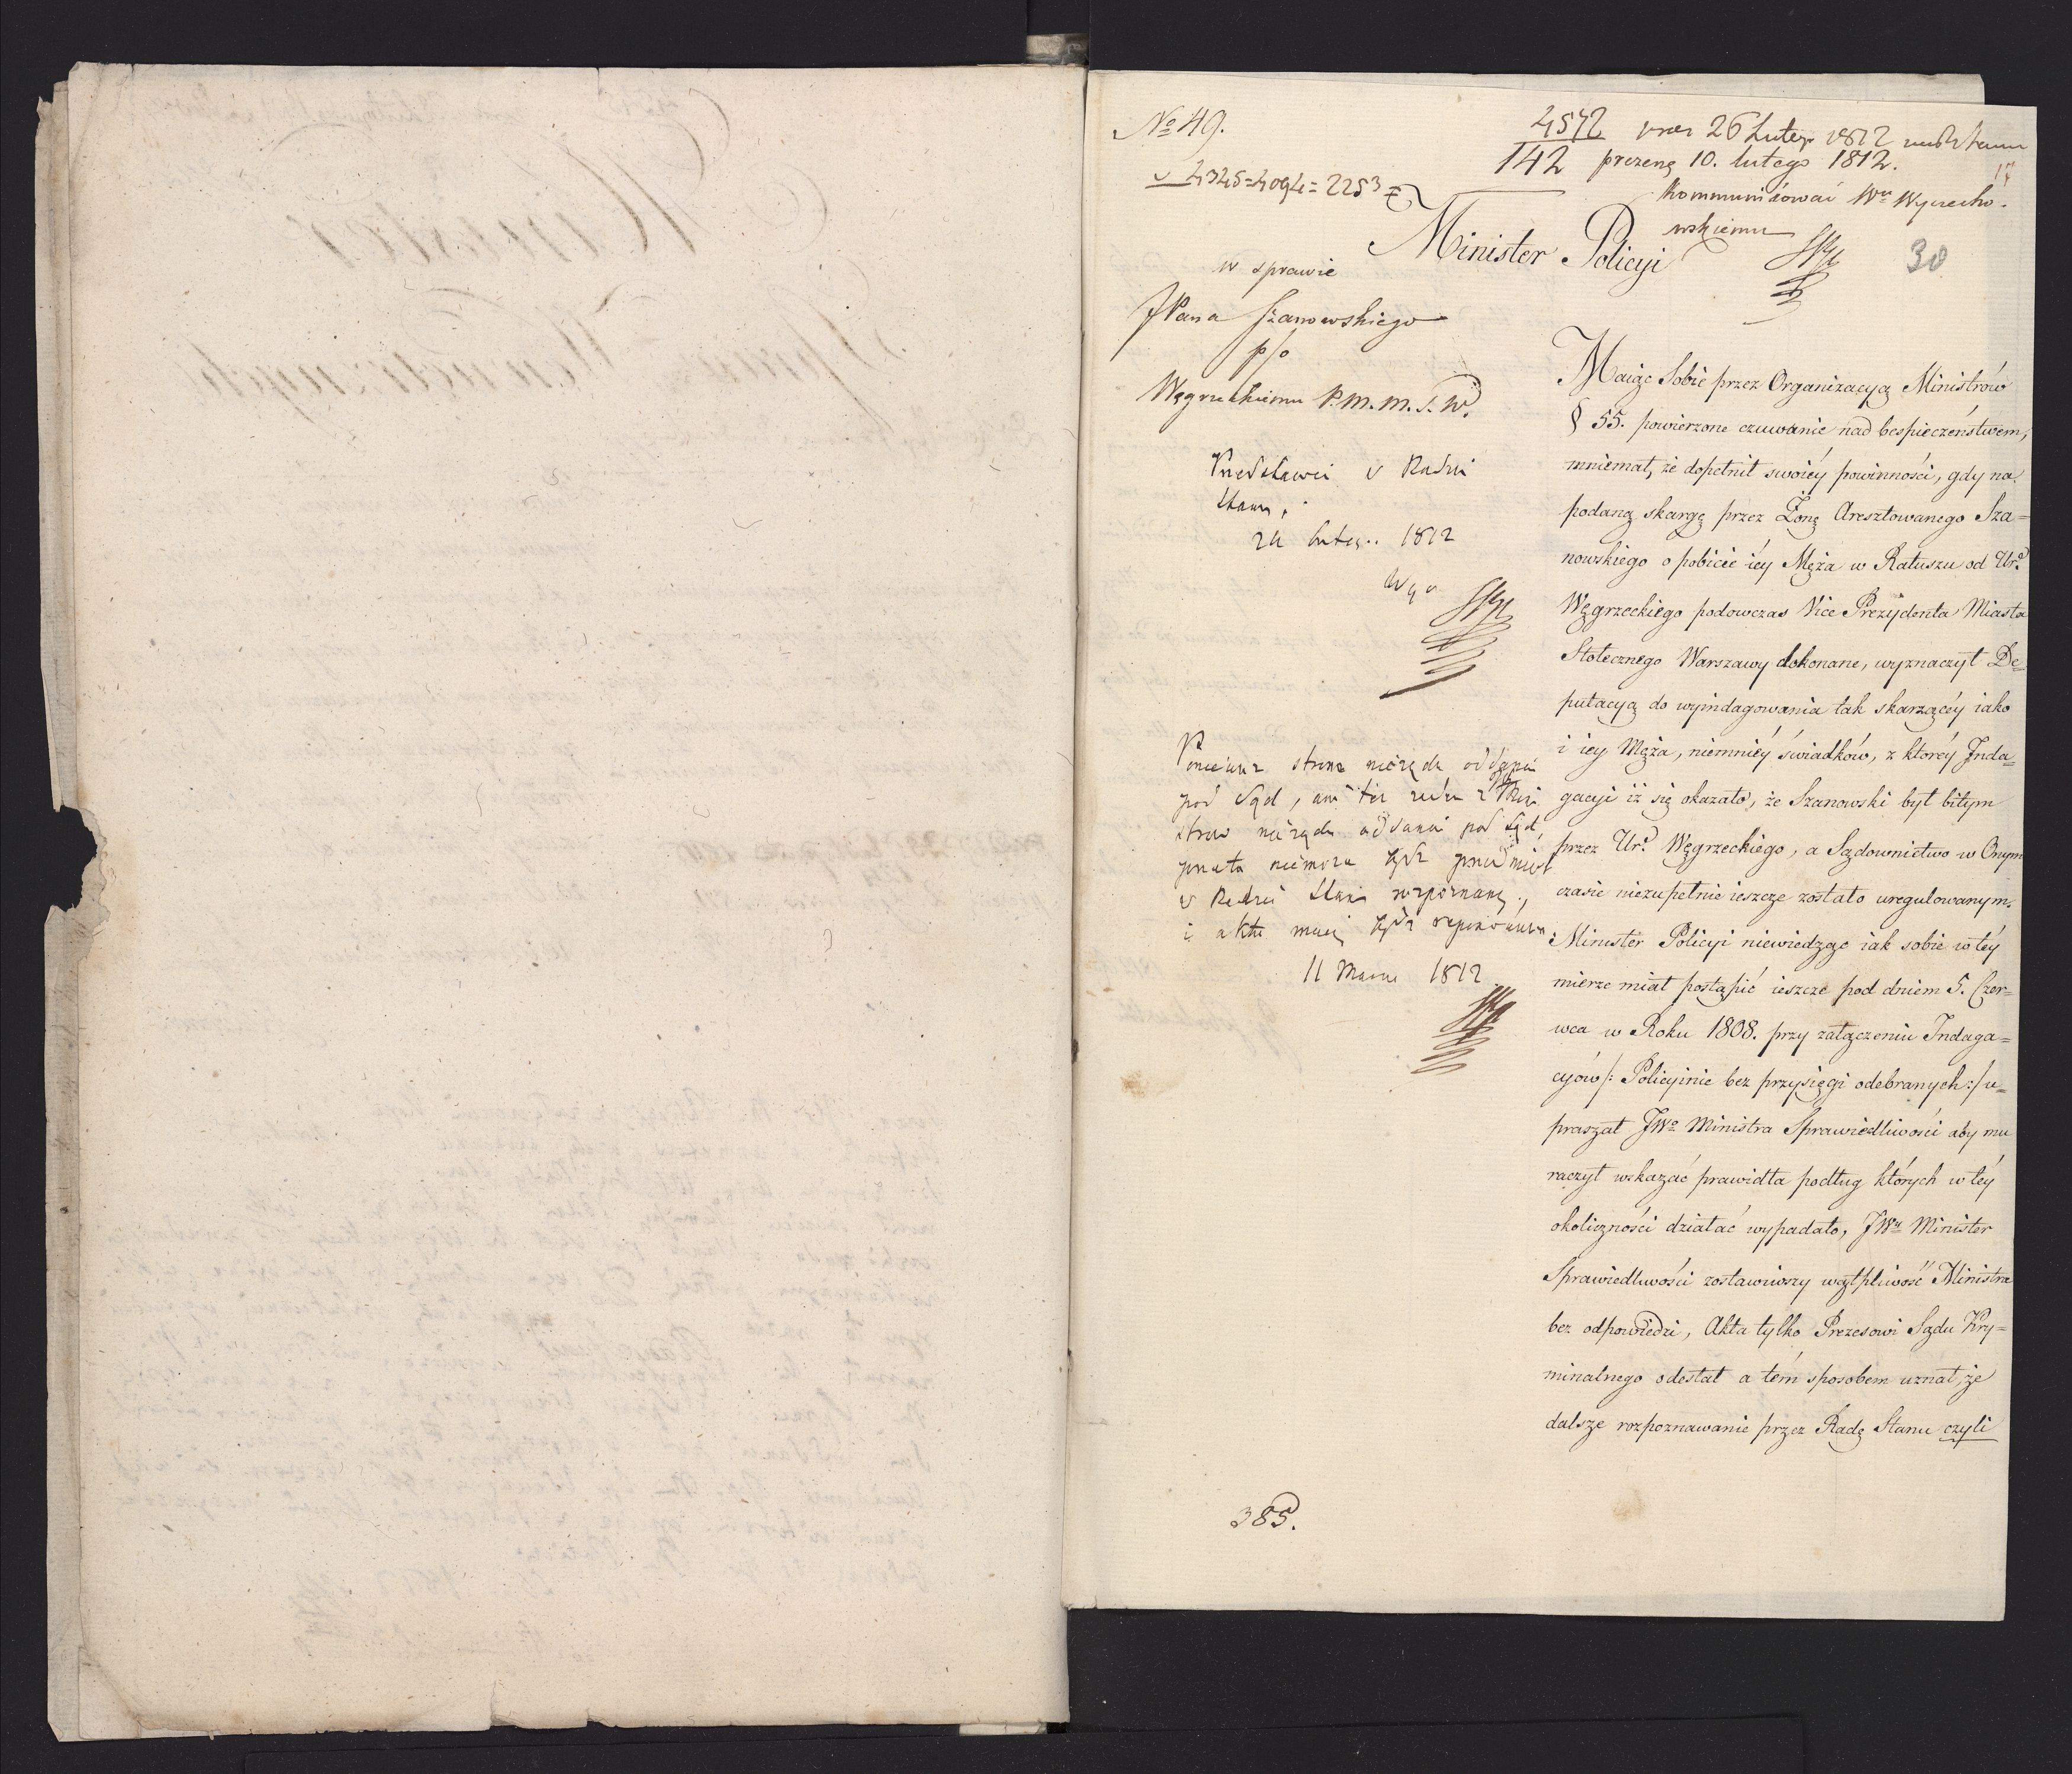 No 49.
4572
142
26 Luteg 1812
prezeng 10. lutego 1812.
17
4345=4094=2253
Kommunikować Wu Wyczecho-
wskiemu
30
Minister Policyi
w sprawie
JPana Szanowskiego
p/o
Węgrzeckiemu P. M. M. S. W.
Przedstawić w Radzie
Stanu.
24 luteg. 1812
Ponieważ strona nie żąda oddania
pod Sąd, ani też
nie żąda oddania pod Sąd,
przeto nie może być przedmiot
w Radzie Stanu rozpoznany,
i akta maią być reponowane.
11 Marca 1812
Maiąc Sobie przez Organizacyą Ministrów
§ 55. powierzone czuwanie nad bespieczeństwem,
mniemał, że dopełnił swoiéy powinności, gdy na
podaną skargę przez Żonę Aresztowanego Sza=
nowskiego o pobicié iéy Męża w Ratuszu od Ur.
Węgrzeckiego podowczas Vice Prezydenta Miasta
Stołecznego Warszawy dokonane, wyznaczył De=
putacyą do wyindagowania tak skarzącéy iako
i iey Męża, niemniéy świadków, z któréy Inda=
gacyi iż się okazało, że Szanowski był bitym
przez Ur. Węgrzeckiego, a Sądownictwo w Onym
czasie niezupełnie ieszcze zostało uregulowanym.
Minister Policyi niewiedząc iak sobie w téy
mierze miał postąpić ieszcze pod dniem 5. Czer=
wca w Roku 1808. przy załączeniu Indaga=
cyów /: Policyinie bez przysięgi odebranych :/ u=
praszał JWo Ministra Sprawiedliwości aby mu
raczył wskazać prawidła podług których w téy
okoliczności działać wypadało, JWu Minister
Sprawiedliwości zostawiwszy wątpliwość Ministra
bez odpowiedzi, Akta tylko Prezesowi Sądu Kry=
minalnego odesłał a tém sposobem uznał, że
dalsze rozpoznawanie przez Radę Stanu czyli
385.